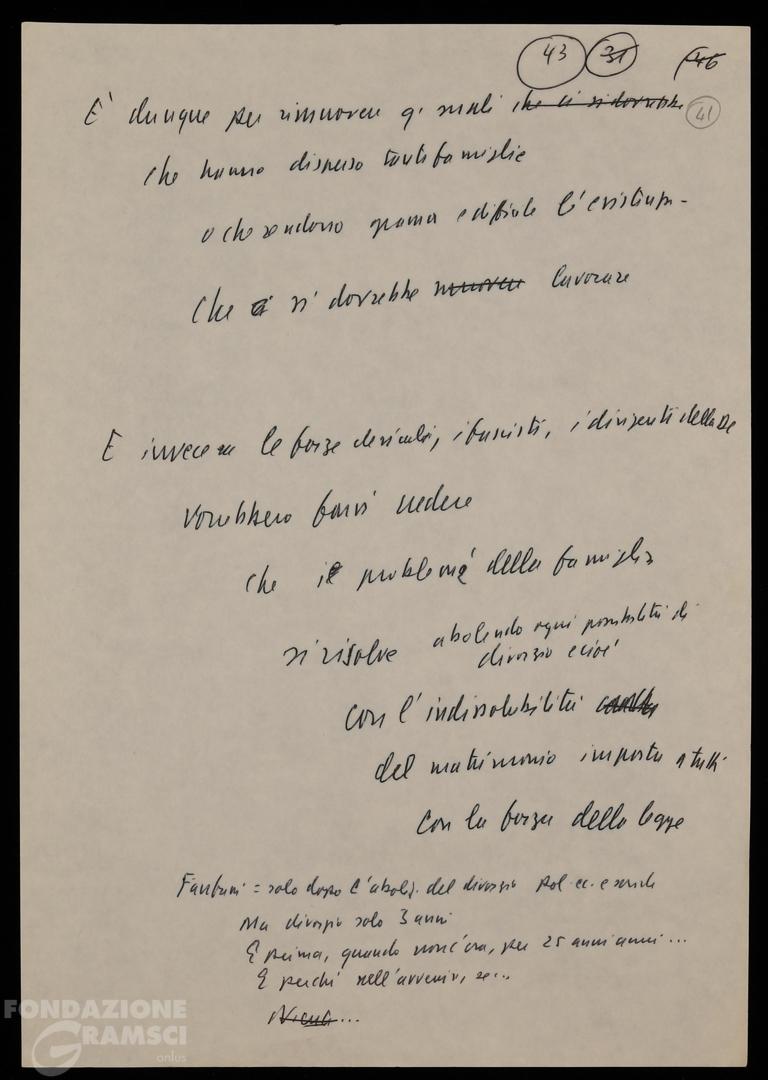 43 31 46
E' dunque per rimuovere q. mali che ci si dovrebbe 41
che hanno disperso tante famiglie
o che rendono grama e difficile l'esistenza -
che ci si dovrebbe muovere lavorare
E invece le forze clericali, i fascisti, i dirigenti della DC
vorrebbero farci credere
che il problema della famiglia
si risolve abolendo ogni possibilità di
divorzio e cioè
con l'indissolubilità
del matrimonio imposta a tutti
con la forza della legge
Fanfani = solo dopo l'aboliz. del divorzio pol. ec. e sociale
Ma divorzio solo 3 anni
E prima, quando non c'era, per 25 anni anni ...
E perché nell'avvenire, se...
FONDAZIONE
GRAMSCI
onlus